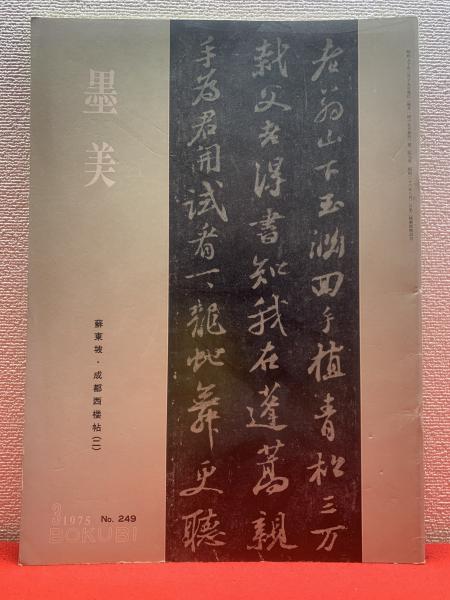 墨美
老翁山下玉淵回手植青松三万
栽父老得書知我在蓬蒿親
手為君開試看一一龍蛇舞更聽
蘇東坡・成都西楼帖(二)
3 1975 No. 249
BOKUBI